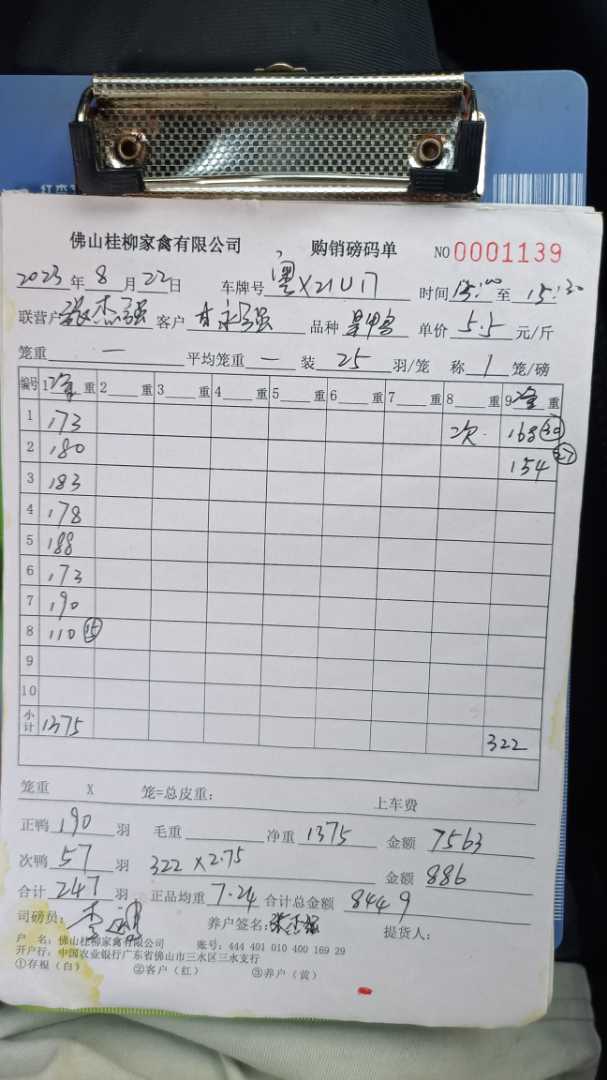 佛山桂柳家禽有限公司 购销磅码单 NO 0001139
2023 年 8 月 22 日 车牌号 粤X21U17 时间 15:00 至 15:30
联营户 张杰强 客户 品种 单价 5.5 元/斤
笼重 — 平均笼重 — 装 25 羽/笼 称 1 笼/磅
编号 1 净 重 2 重 3 重 4 重 5 重 6 重 7 重 8 重 9 净 重
1 173 次. 168 (30)
2 180 154 (27)
3 183
4 178
5 188
6 173
7 190
8 110 (15)
9
10
小计 1375 322
笼重 X 笼=总皮重: 上车费
正鸭 190 羽 毛重 净重 1375 金额 7563
次鸭 57 羽 322 X 2.75 金额 886
合计 247 羽 正品均重 7.24 合计总金额 8449
司磅员: 养户签名: 张杰强 提货人:
户 名: 佛山桂柳家禽有限公司 账号: 444 401 010 400 169 29
开户行: 中国农业银行广东省佛山市三水区三水支行
①存根(白) ②客户(红) ③养户(黄)